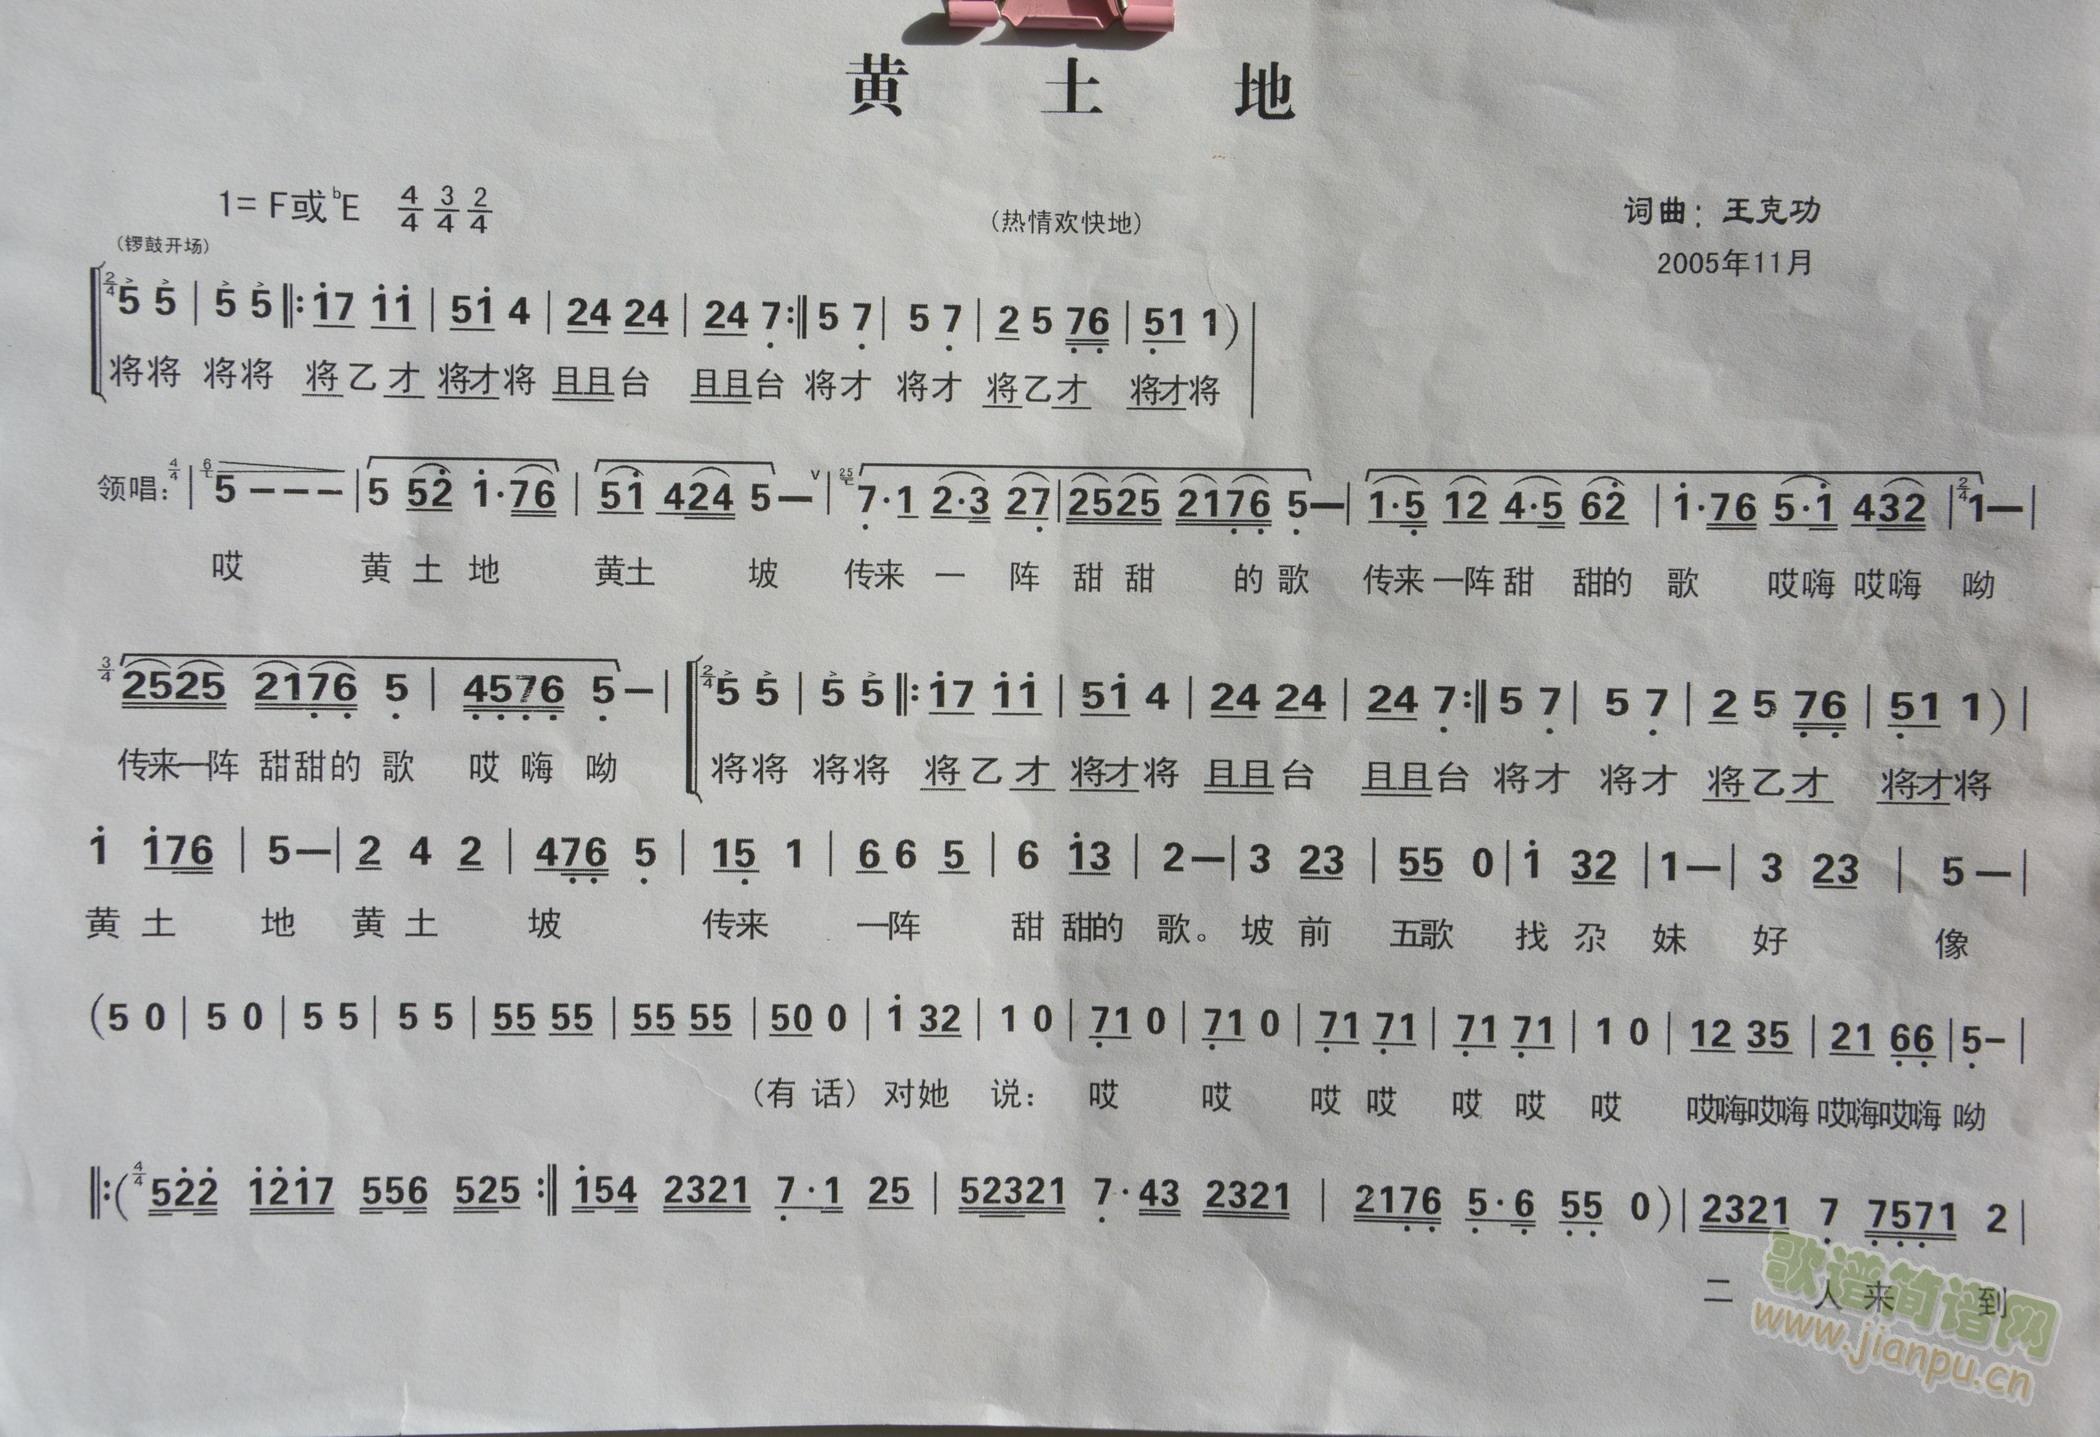 黄 土 地
1= F或ᵇE 4/4 3/4 2/4 (热情欢快地) 词曲：王克功
(锣鼓开场) 2005年11月
2/4 5 5 | 5 5 ‖: i7 ii | 5i 4 | 24 24 | 24 7 :‖ 5 7 | 5 7 | 2 5 76 | 51 1 ) |
将将 将将 将乙才 将才将 且且台 且且台 将才 将才 将乙才 将才将
领唱: 4/4 | 5 - - - | 5 52 i·76 | 5i 424 5 — V | 7·1 2·3 27 | 2525 2176 5 — | 1·5 12 4·5 62 | i·76 5·i 432 | 2/4 1 — |
哎 黄 土 地 黄土 坡 传来 一 阵 甜 甜 的 歌 传来 一阵 甜 甜的 歌 哎嗨 哎嗨 呦
3/4 2525 2176 5 | 4576 5 — | 2/4 5 5 | 5 5 ‖: i7 ii | 5i 4 | 24 24 | 24 7 :‖ 5 7 | 5 7 | 2 5 76 | 51 1 ) |
传来一阵 甜甜的 歌 哎 嗨 呦 将将 将将 将乙才 将才将 且且台 且且台 将才 将才 将乙才 将才将
i i76 | 5 — | 2 4 2 | 476 5 | 15 1 | 6 6 5 | 6 i3 | 2 — | 3 23 | 55 0 | i 32 | 1 — | 3 23 | 5 — |
黄 土 地 黄 土 坡 传来 一阵 甜 甜的 歌。坡 前 五歌 找 尕 妹 好 像
(5 0 | 5 0 | 5 5 | 5 5 | 55 55 | 55 55 | 50 0 | i 32 | 1 0 | 71 0 | 71 0 | 71 71 | 71 71 | 1 0 | 12 35 | 21 66 | 5 - |
(有 话) 对她 说: 哎 哎 哎 哎 哎 哎 哎 哎嗨哎嗨 哎嗨哎嗨 呦
‖: ( 4/4 522 i2i7 556 525 :‖ i54 2321 7·1 25 | 52321 7·43 2321 | 2176 5·6 55 0 ) | 2321 7 7571 2 |
二 人 来 到
歌谱简谱网
www.jianpu.cn